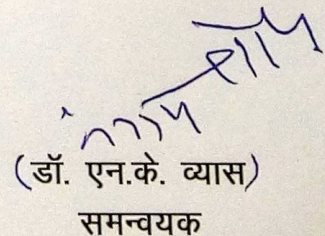 (डॉ. एन.के. व्यास)
समन्वयक